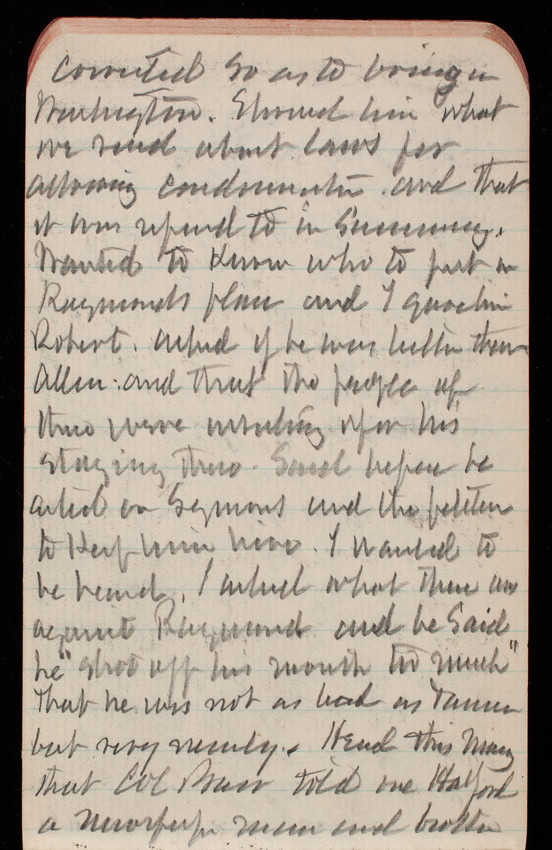 so as to bring in
Washington. Showed him what
we read about laws for
allowing condemnation and that
it was referred to in Summary.
Wanted to know who to put in
Raymonds place and I gave him
Robert. asked if he was better than
Allen. and that the people of
there were insisting upon his
staying there. Said before he
acted on Symons and the petition
to Keep him here. I wanted to
be heard. I asked what there was
against Raymond and he Said
he "shot off his mouth too much"
that he was not as bad as Tanner
but very nearly. Heard this Morng
that Col told me Halford
a newspaper man and brother